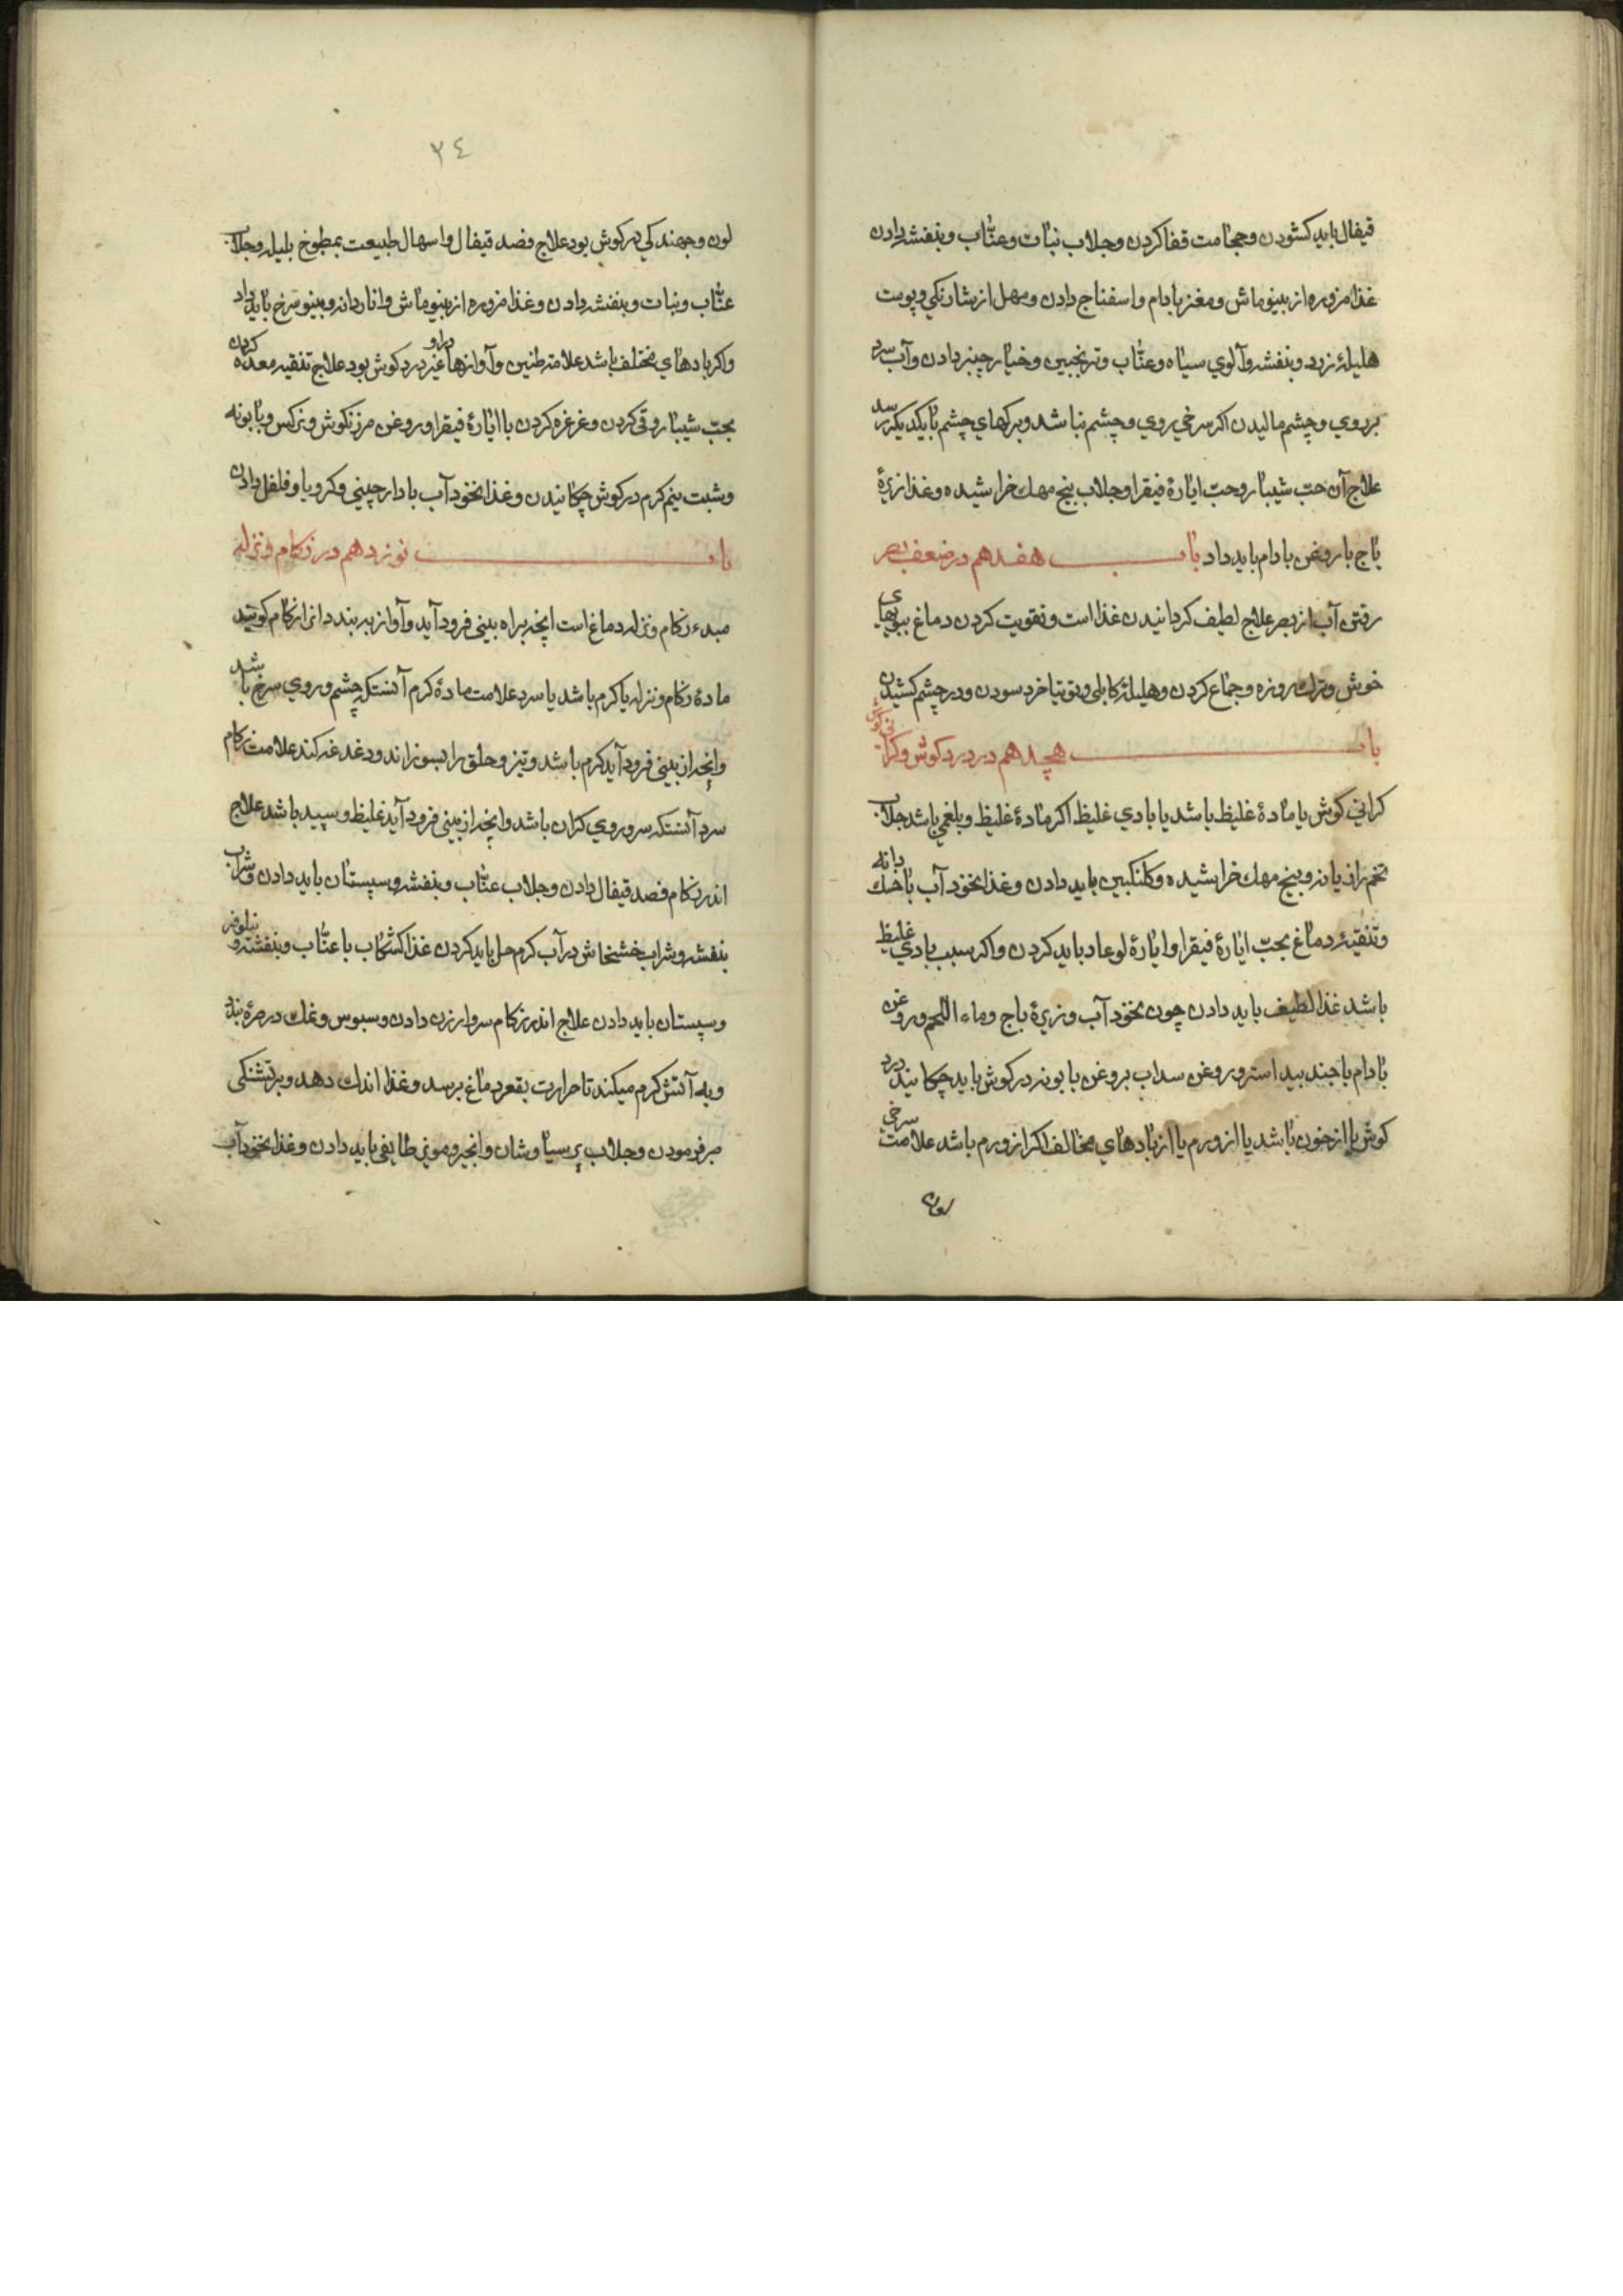 قیفال باید کشودن و حجامت قفا کردن و جلاب نبات و عنّاب و بنفشه دادن
غذا مزوره از بینو ماش و مغز بادام و اسفناج دادن و مهل از شارنکی و پوست
هلیلۀ زرد و بنفشه و آلوي سیاه و عنّاب و ترنجبین و خیار چنبر دادن و آب سرد
بر روي و چشم مالیدن اکر سرخي روي و چشم نباشد و برکهاي چشم بایکدیکر رسد
علاج آن حبّ شیبار و حبّ ایارۀ فیقرا و جلاب بیخ مهك خراشیده و غذا زیرۀ
باج با روغن بادام باید داد باب هفدهم در ضعف بصر
رفتن آب از بصر علاج لطیف کردانیدن غذا است و تقویت کردن دماغ ببویهای
خوش و ترك روزه و جماع کردن و هلیلۀ کابلی و توتیا خرد سودن و در چشم کشیدن
باب هجدهم در درد کوش و کرانی کوش
کرانی کوش یا مادۀ غلیظ باشد یا بادي غلیظ اکر مادۀ غلیظ و بلغمي باشد جلاب
تخم رازیانه و بیخ مهك خراشیده و کلنکبین باید دادن و غذا نخود آب با خسك دانه
و تنقیۀ دماغ بحبّ ایارۀ فیقرا و ایارۀ لوعاد باید کردن و اکر سبب بادي غلیظ
باشد غذا لطیف باید دادن چون نخود آب و زیرۀ باج و ماء اللحم و روغن
بادام با جند بیداستر و روغن سداب بروغن بابونه در کوش باید چکانید درد
کوش یا از خون باشد یا از ورم یا از بادهاي مخالف اکر از ورم باشد علامت سرخی
لون
٣٤
لون و جهندکي در کوش بود علاج فصد قیفال و اسهال طبیعت بمطبوخ بلیله و جلاب
عنّاب و نبات و بنفشه دادن و غذا مزوره از بینو ماش و انار دانه و بینو سرخ باید داد
و اکر بادهاي مختلف باشد علامت طنین و آوازها و غیر درد کوش بود علاج تنقیه معده کردن
بحبّ شیبار و قی کردن و غرغره کردن با ایارۀ فیقرا و روغن مرزنکوش و نرکس و بابونه
و شبت نیم کرم در کوش چکانیدن و غذا نخود آب با دارچینی و کرویا و فلفل دادن
باب نوزدهم در زکام و نزله
مبدء زکام و نزله دماغ است انچه براه بینی فرود آید و آواز ببربندد انرا زکام کویند
مادۀ زکام و نزله یا کرم باشد یا سرد علامت مادۀ کرم آنستکه چشم و روي سرخ باشد
و انچه از بینی فرود آید کرم باشد و تیز و حلق را بسوزاند و دغدغه کند علامت زکام
سرد آنستکه سر و روي کران باشد و انچه از بینی فرود آید غلیظ و سپید باشد علاج
اندر زکام فصد قیفال دادن و جلاب عنّاب و بنفشه و سپستان باید دادن و شراب
بنفشه و شراب خشخاش در آب کرم حل باید کردن غذا کشکاب با عنّاب و بنفشه و نیلوفر
و سپستان باید دادن علاج اندر زکام سرد ارزن دادن و سبوس و نمك در صرۀ بندد
و به آتش کرم میکند تا حرارت بقعر دماغ برسد و غذا اندك دهد و بر تشنکی
صبر فرمودن و جلاب پرسیاوشان و انجیر و مویز طایفی باید دادن و غذا نخود آب